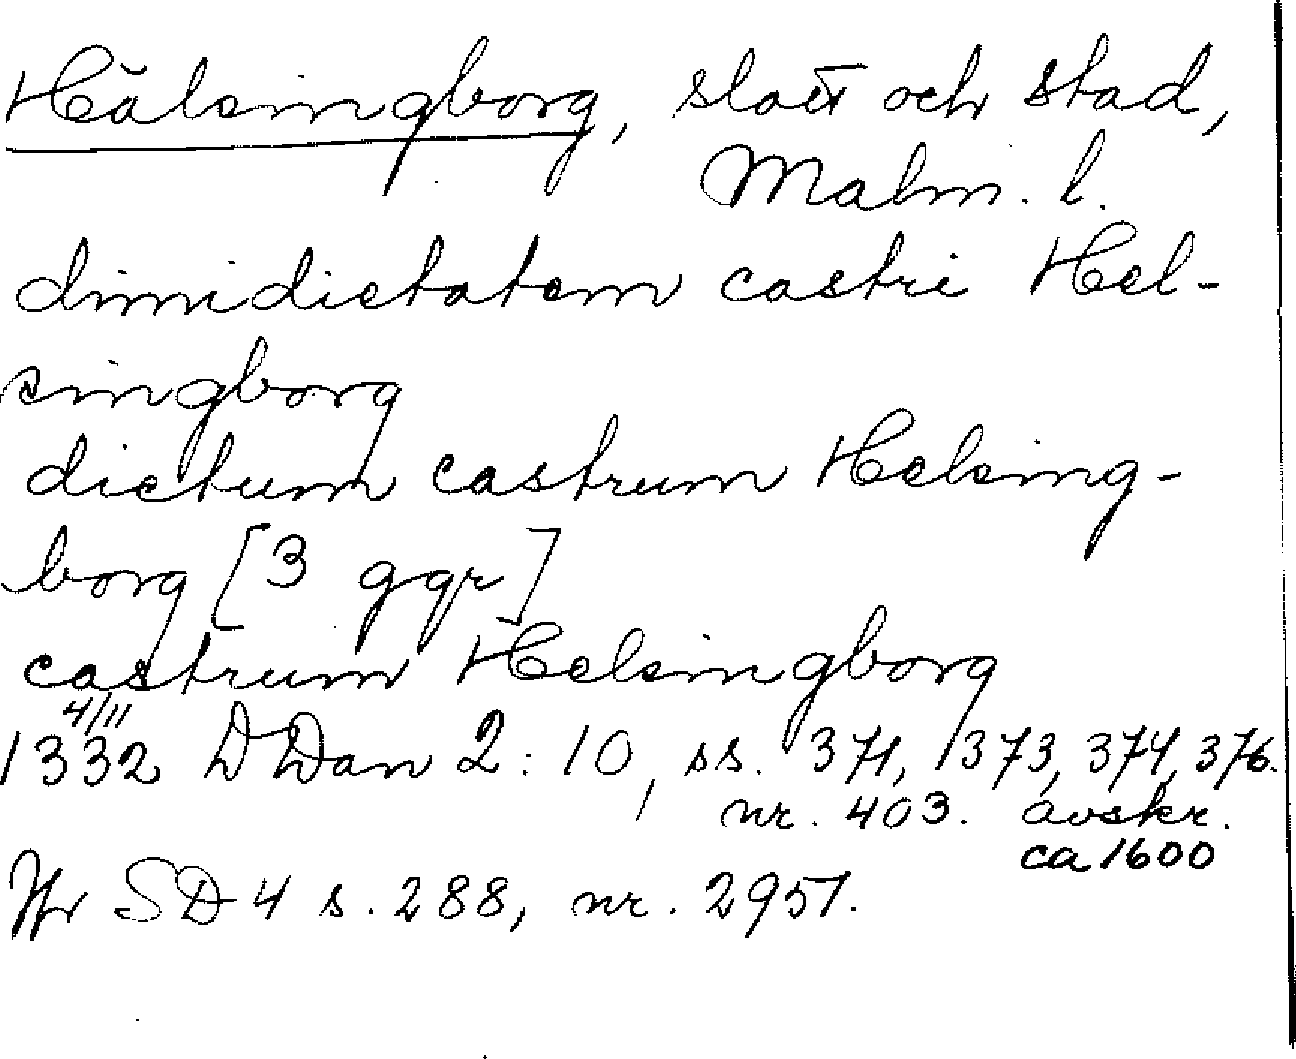 Hälsingborg, slott och stad,
Malm. l.
dimidietatem castri Hel-
singborg
dictum castrum Helsing-
borg [3 ggr]
castrum Helsingborg
4/11
1332 DDan 2:10, ss. 371, 373, 374, 376.
nr. 403. avskr.
ca 1600
Jfr SD 4 s. 288, nr. 2951.